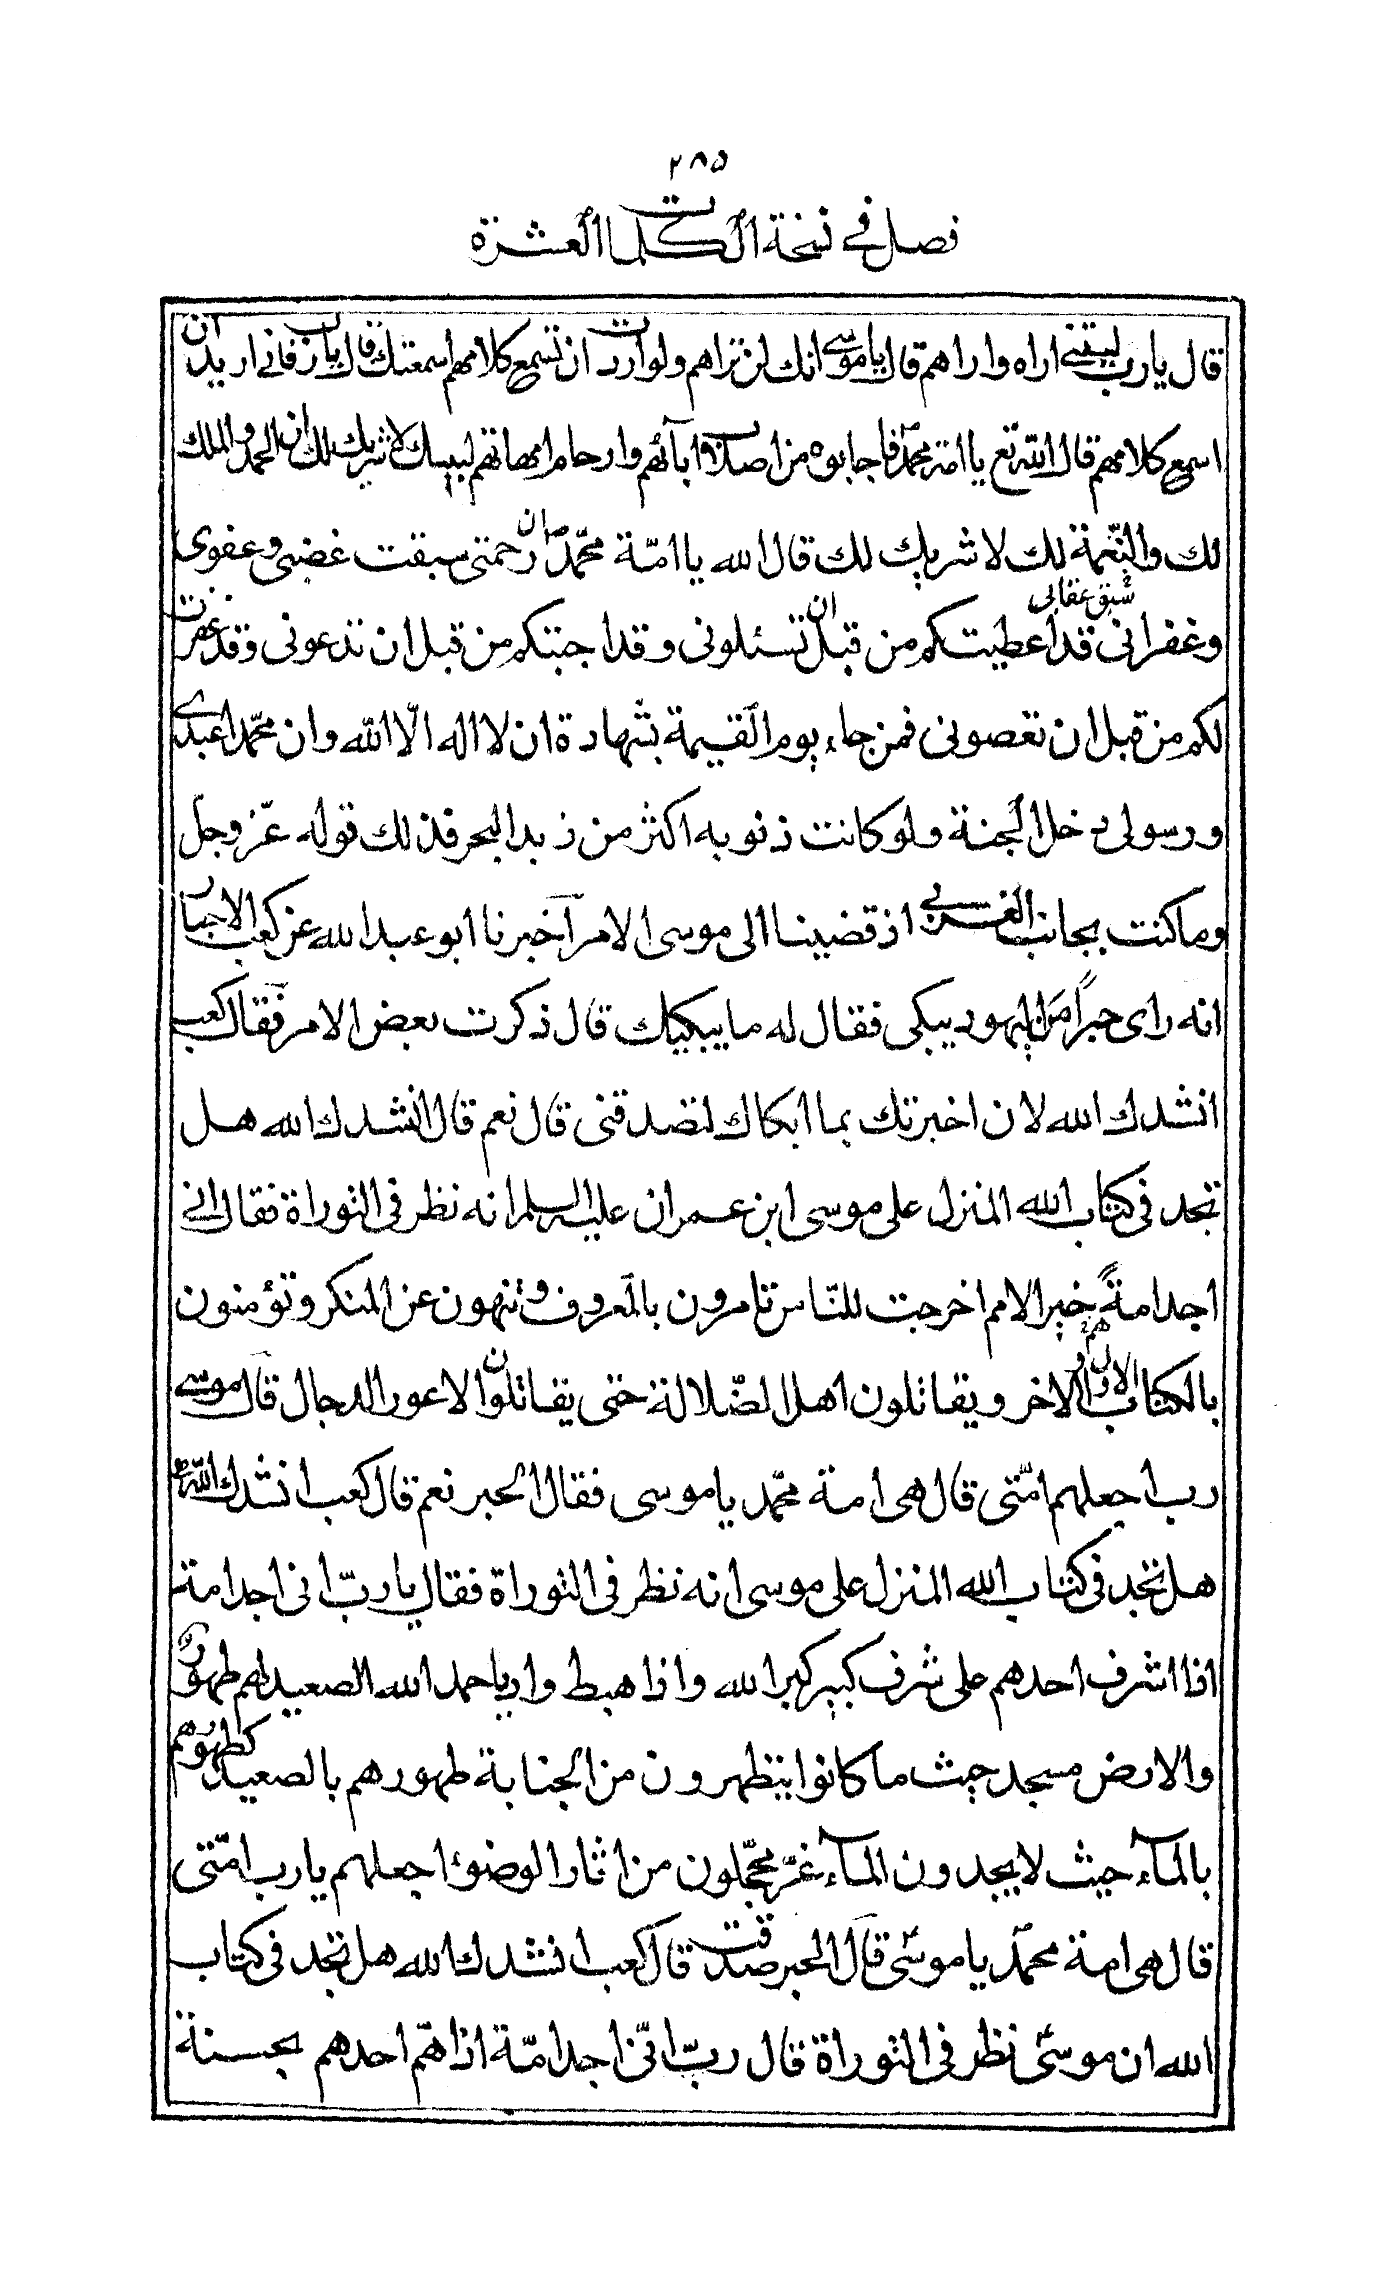 ٢٨٥
فصل في نسخة الكلمات العشرة
قال يا رب ليتني اراه واراهم قال يا موسى انك لن تراهم ولو اردت ان تسمع كلامهم اسمعتك قال يا رب فاني اريد ان
اسمع كلامهم قال الله تع يا امة محمد فاجابوه من اصلاب آبآئهم وارحام امهاتهم لبيك لا شريك لك ان الحمد والملك
لك والنّعمة لك لا شريك لك قال الله يا امّة محمّد ص ان رحمتى سبقت غضبى وعفوى
سبق عقابى
وغفرانى قد اعطيتكم من قبل ان تسئلونى وقد اجبتكم من قبل ان تدعونى وقد غفرت
لكم من قبل ان تعصونى فمن جاء يوم القيمة بشهادة ان لا اله الّا اللّه وان محمّدا عبدى
ورسولى دخل الجنة ولو كانت ذنوبه اكثر من زبد البحر فذلك قوله عزّ وجل
وما كنت بجانب الغربي اذ قضينا الى موسى الامر آخبرنا ابو عبد الله عن كعب الاحبار
انه راى حبراً من اليهود يبكى فقال له ما يبكيك قال ذكرت بعض الامر فقال كعب
انشدك الله لان اخبرتك بما ابكاك لتصدقنى قال نعم قال انشدك الله هل
تجد فى كتاب الله المنزل على موسى ابن عمران عليه السلم انه نظر فى التوراة فقال اني
اجد امةً خير الامم اخرجت للنّاس تامرون بالمعروف وتنهون عن المنكر وتؤمنون
بالكتاب الاول والاخر ويقاتلون اهل الضّلالة حتى يقاتلون الاعور الدجال قال موسى
رب اجعلهم امّتى قال هى امة محمّد يا موسى فقال الحبر نعم قال كعب انشدك اللّه
هل تجد فى كتاب الله المنزل على موسى انه نظر فى التوراة فقال يا ربّ انى اجد امة
اذا اشرف احدهم على شرف كبير كبر الله واذا هبط واديا حمد الله الصعيد لهم طهور
والارض مسجد حيث ما كانوا يتطهرون من الجنابة طهورهم بالصعيد كطهورهم
بالمآء حيث لا يجدون المآء غرّ محجّلون من اثار الوضوء اجعلهم يا رب امّتى
قال هى امة محمّد يا موسى قال الحبر صدقت قال كعب انشدك الله هل تجد فى كتاب
الله ان موسى نظر فى التوراة قال ربّ انّى اجد امّة اذا همّ احدهم بحسنة